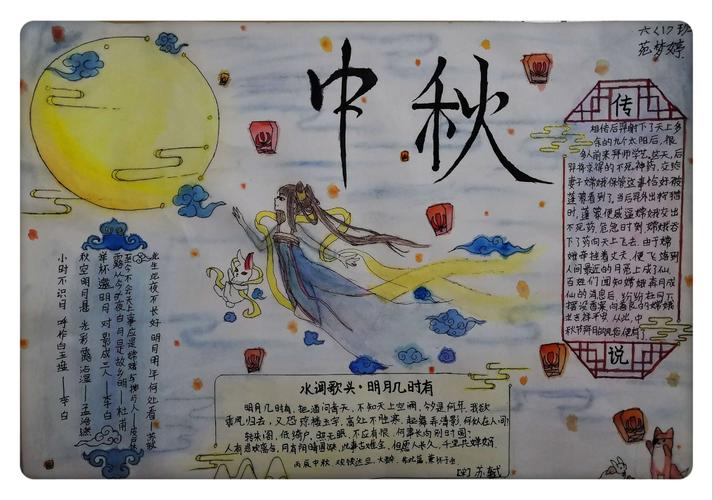 六(1)班
梦婷
中秋
传
相传后羿射下了天上多
余的九个太阳后,很
多人前来拜师学艺。这天,后
羿将交换的不死神药,交给
妻子嫦娥保管这事恰好被
蓬蒙看到了。当后羿外出狩猎
时,蓬蒙便威逼嫦娥交出
不死药,危急时刻嫦娥吞
下了药向天上飞去。由于嫦
娥牵挂丈夫,便飞落到
人间最近的月亮上成了仙。
百姓们闻知嫦娥奔月成
仙的消息后,纷纷在月下
摆设香案向善良的嫦娥
吉祥平安。从此,中
秋节拜月的风俗便有了
说
此生此夜不长好 明月明年何处看——苏轼
至今不会天上事 应是嫦娥掷与人——皮日休
露从今夜白 月是故乡明——杜甫
举杯邀明月 对影成三人——李白
秋空明月悬 光彩露沾湿——孟浩然
小时不识月 呼作白玉盘——李白
水调歌头·明月几时有
明月几时有,把酒问青天,不知天上宫阙,今夕是何年,我欲
乘风归去,又恐琼楼玉宇,高处不胜寒,起舞弄清影,何似在人间
转朱阁,低绮户,照无眠,不应有恨,何事长向别时圆?
人有悲欢离合,月有阴晴圆缺,此事古难全,但愿人长久,千里共婵娟
丙辰中秋,欢饮达旦,大醉,作此篇,兼怀子由
[宋]苏轼